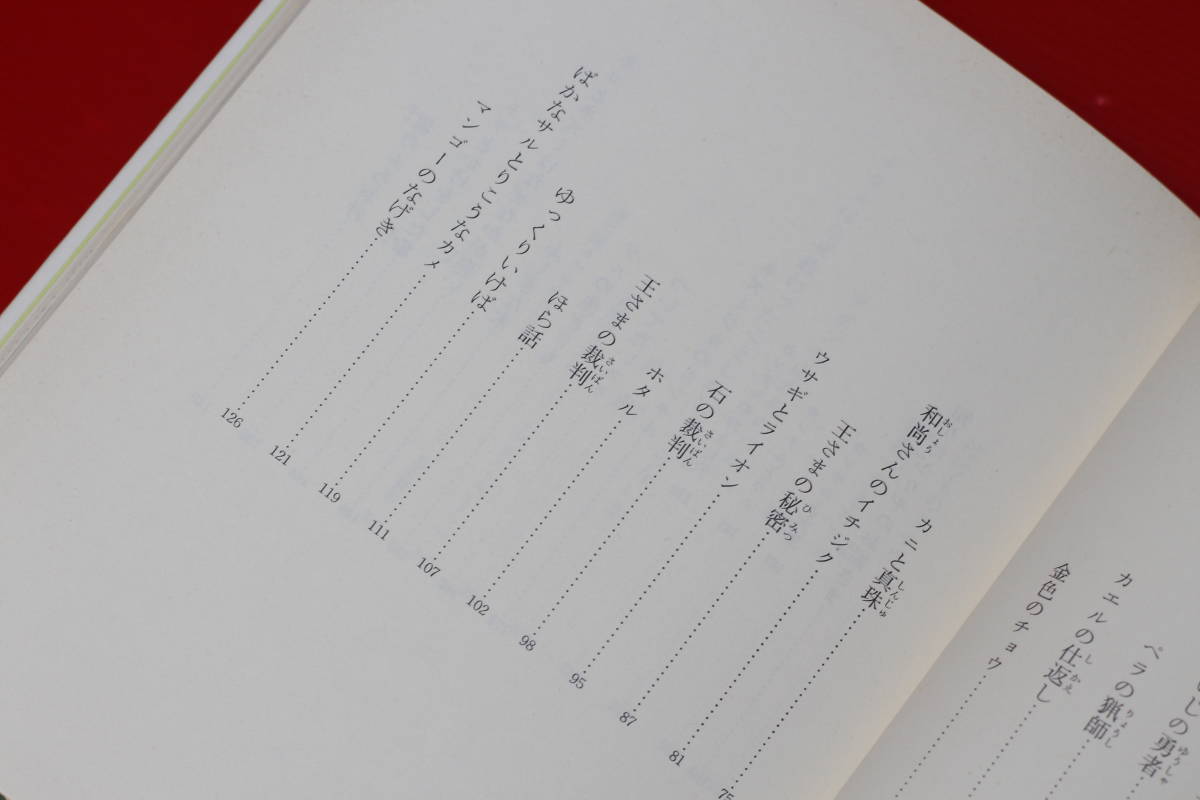 じの勇者
ペラの猟師
カエルの仕返し
金色のチョウ
カニと真珠……75
和尚さんのイチジク……81
王さまの秘密……87
ウサギとライオン……95
石の裁判……98
ホタル……102
王さまの裁判……107
ほら話……111
ゆっくりいけば……119
ばかなサルとりこうなカメ……121
マンゴーのなげき……126